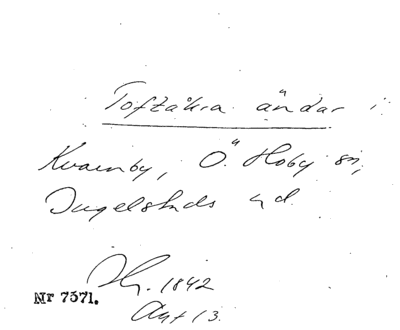 Toftåkra ändar i
Kvarnby, Ö. Hoby sn,
Ingelstads hd.
Hg. 1842
Akt 13.
Nr 7571.